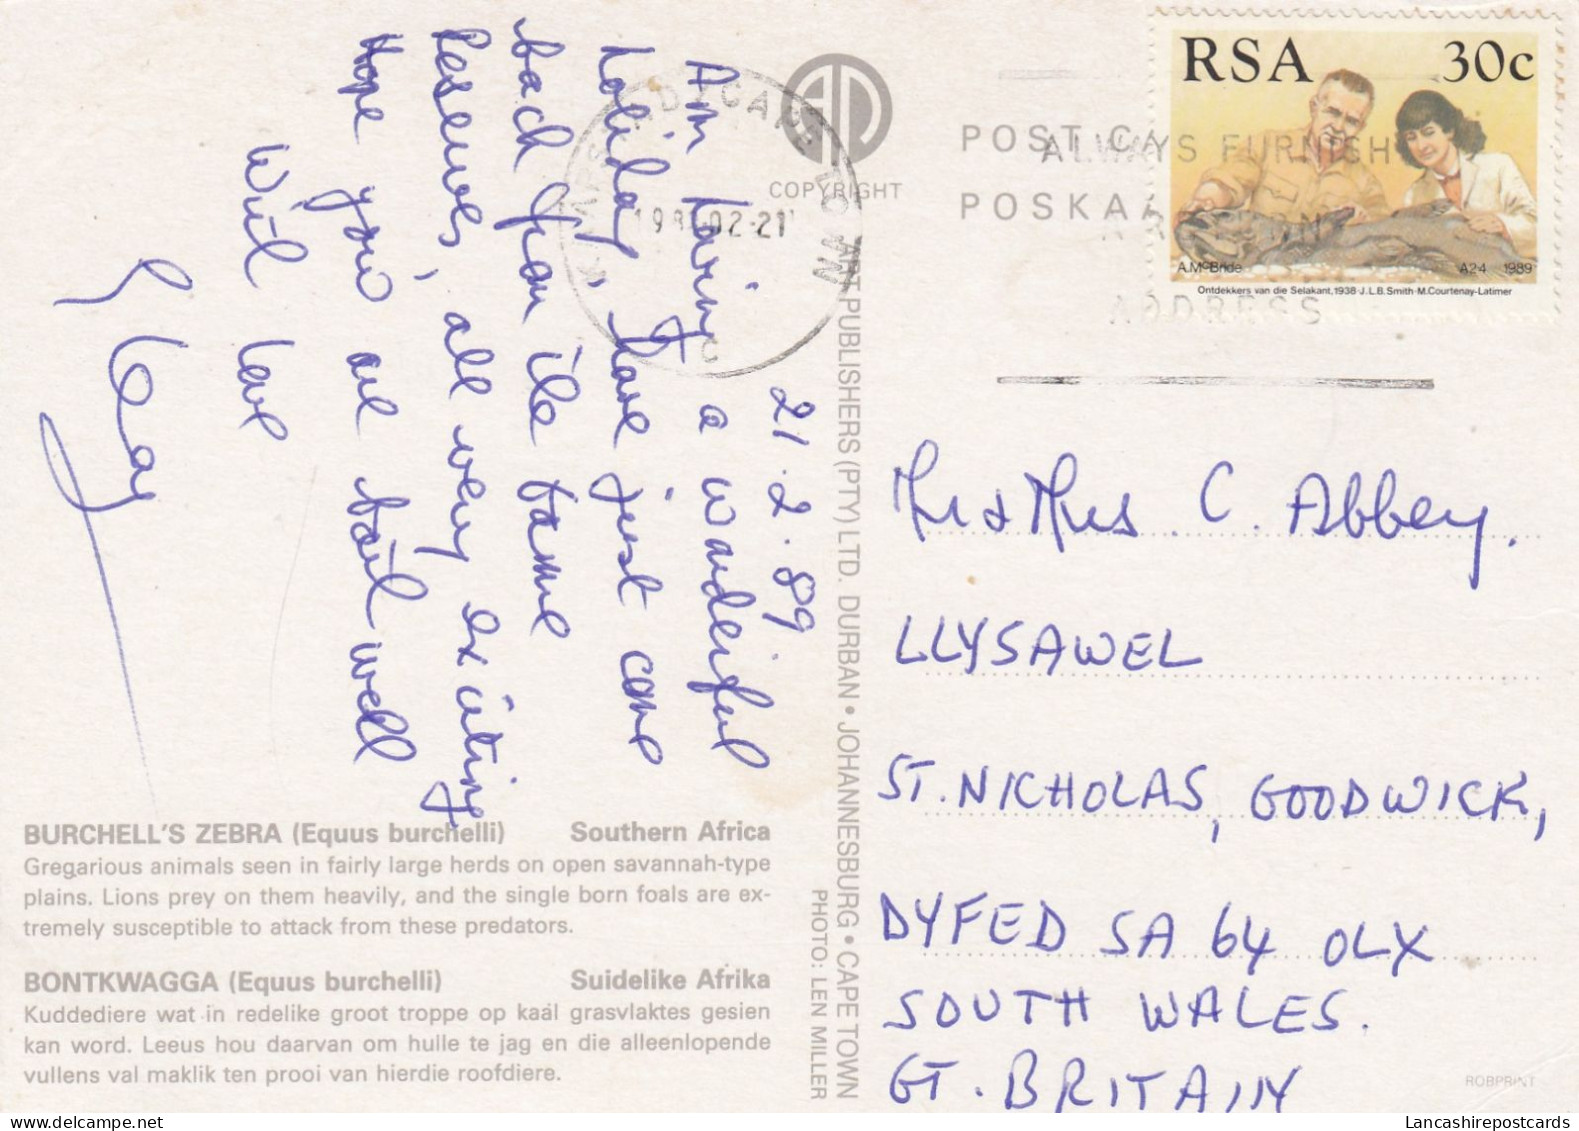 21.2.89
Am having a wonderful
holiday, have just come
back from the Game
Reserves, all very exciting
Hope you are both well
With love
BURCHELL'S ZEBRA (Equus burchelli) Southern Africa
Gregarious animals seen in fairly large herds on open savannah-type
plains. Lions prey on them heavily, and the single born foals are ex-
tremely susceptible to attack from these predators.
BONTKWAGGA (Equus burchelli) Suidelike Afrika
Kuddediere wat in redelike groot troppe op kaal grasvlaktes gesien
kan word. Leeus hou daarvan om hulle te jag en die alleenlopende
vullens val maklik ten prooi van hierdie roofdiere.
COPYRIGHT
ART PUBLISHERS (PTY) LTD. DURBAN • JOHANNESBURG • CAPE TOWN
PHOTO: LEN MILLER
CAPE TOWN
02-21
POST CA
POSKAA
ALWAYS FURNISH
ADDRESS
RSA 30c
A. McBride A24 1989
Ontdekkers van die Selakant, 1938-J.L.B. Smith-M. Courtenay-Latimer
Mr & Mrs. C. Abbey.
LLYSAWEL
ST. NICHOLAS, GOODWICK,
DYFED SA 64 OLX
SOUTH WALES.
GT. BRITAIN
ROBPRINT
Lancashirepostcards